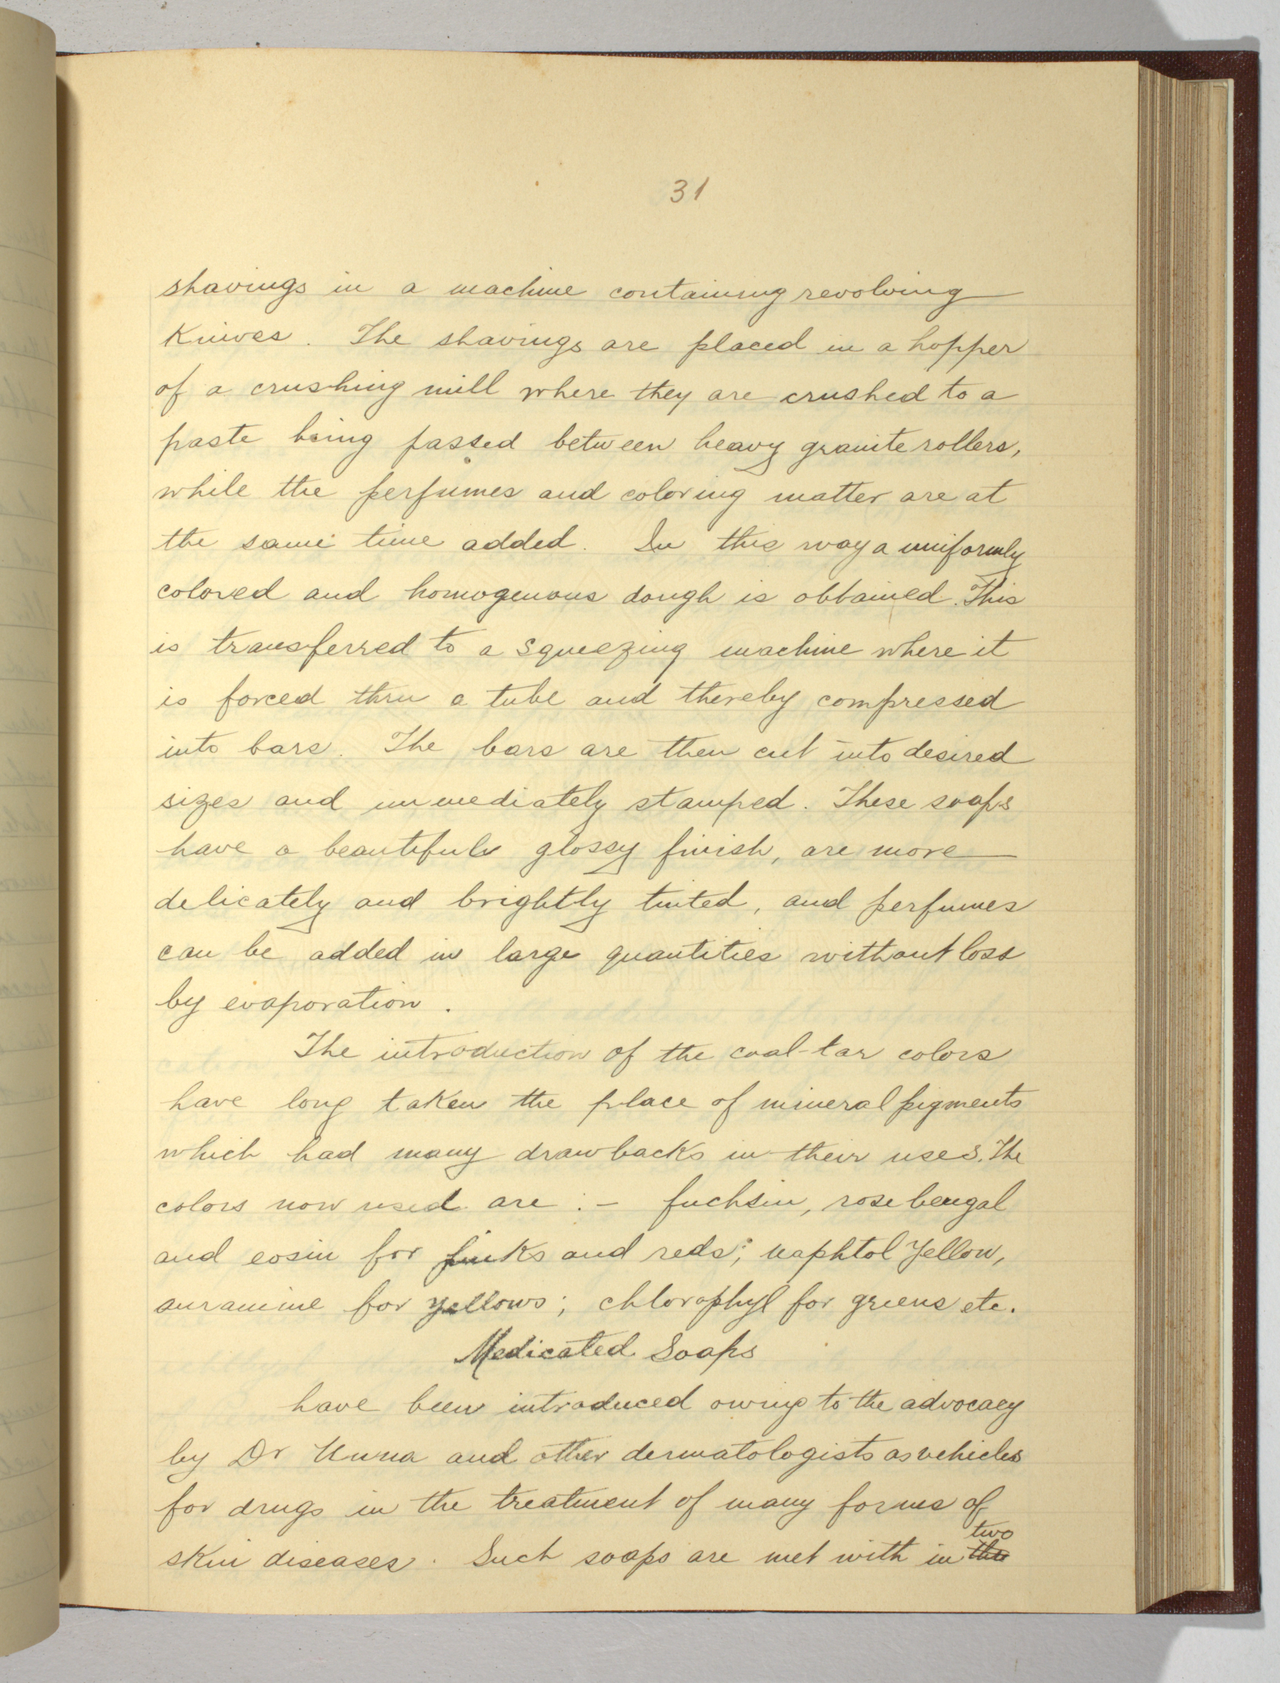 31
shavings in a machine containing revolving
Knives. The shavings are placed in a hopper
of a crushing mill where they are crushed to a
paste being passed between heavy granite rollers,
while the perfumes and coloring matter are at
the same time added. In this way a uniformly
colored and homogenous dough is obtained. This
is transferred to a squeezing machine where it
is forced thru a tube and thereby compressed
into bars. The bars are then cut into desired
sizes and immediately stamped. These soaps
have a beautiful glossy finish, are more
delicately and brightly tinted, and perfumes
can be added in large quantities without loss
by evaporation.
The introduction of the coal-tar colors
have long taken the place of mineral pigments
which had many drawbacks in their uses. The
colors now used are :- fuchsin, rose bengal
and eosin for pinks and reds; naphtol Yellow,
auramine for yellows; chlorophyl for greens etc.
Medicated Soaps
have been introduced owing to the advocacy
by Dr Unna and other dermatologists as vehicles
for drugs in the treatment of many forms of
skin diseases. Such soaps are met with in two